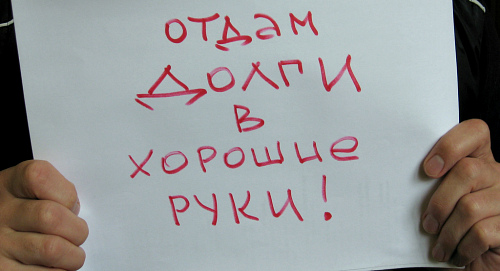 отдам
Долги
в
хорошие
руки!